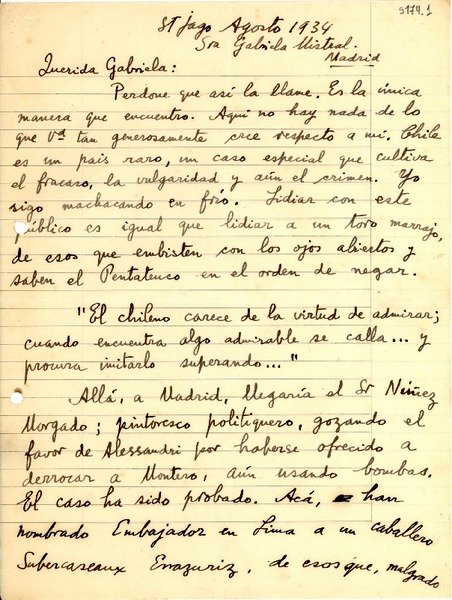 5174.1
St jago Agosto 1934
Sra Gabriela Mistral.
Madrid
Querida Gabriela:
Perdone que así la llame. Es la única
manera que encuentro. Aqui no hay nada de lo
que Vd tan generosamente cree respecto a mi. Chile
es un pais raro, un caso especial que cultiva
el fracaso, la vulgaridad y aún el crimen. Yo
sigo machacando en frío. Lidiar con este
público es igual que lidiar a un toro marrajo,
de esos que embisten con los ojos abiertos y
saben el Pentateuco en el orden de negar.
"El chileno carece de la virtud de admirar;
cuando encuentra algo admirable se calla... y
procura imitarlo superando..."
Allá, a Madrid, llegaría el Sr Núñez
Morgado; pintoresco politiquero, gozando el
favor de Alessandri por haberse ofrecido a
derrocar a Montero, aún usando bombas.
El caso ha sido probado. Acá, han
nombrado Embajador en Lima a un caballero
Subercaseaux Errazuriz, de esos que, malgrado